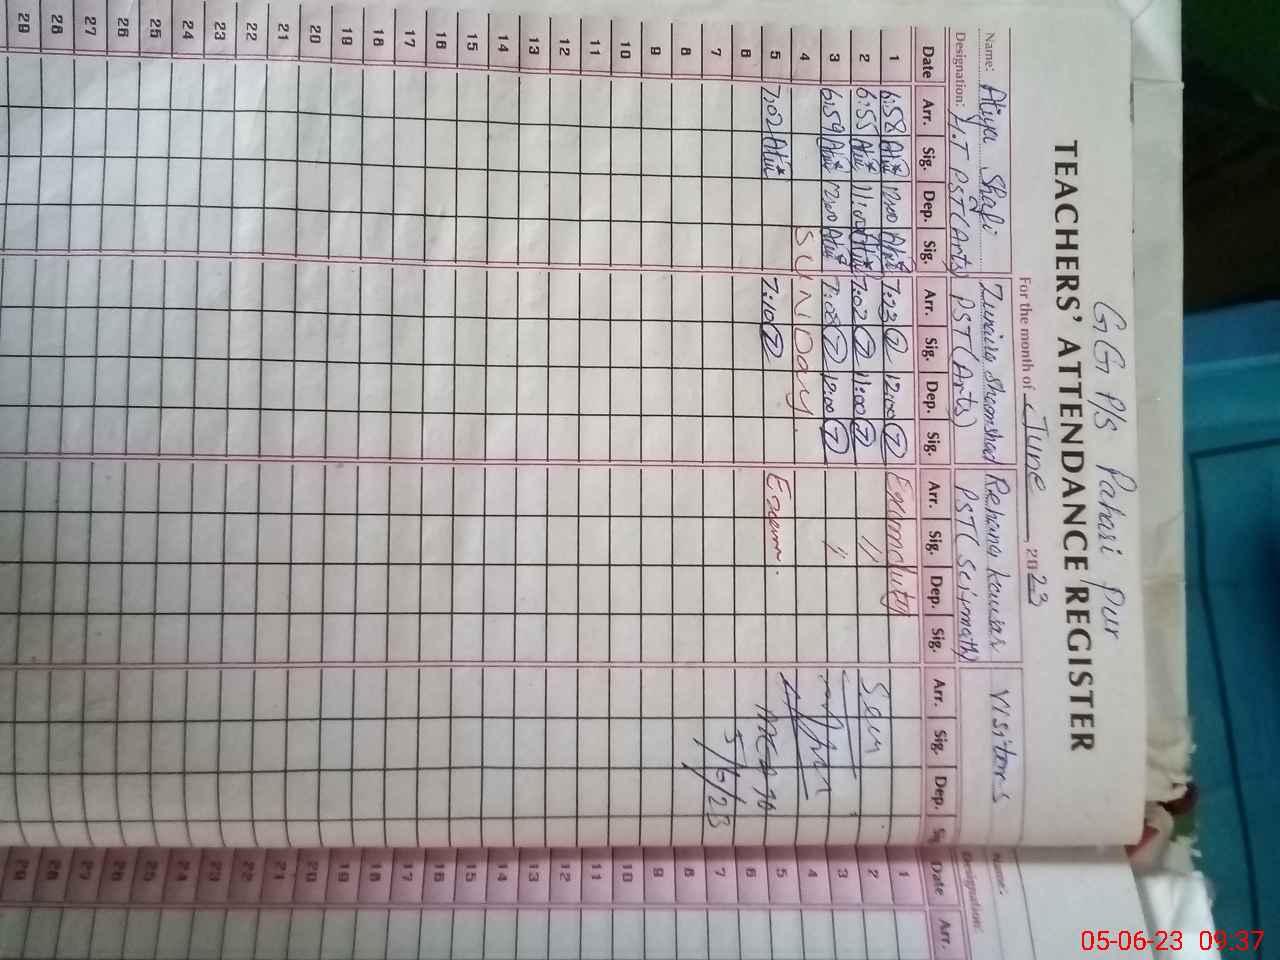 GG P/S Pahari pur
TEACHERS' ATTENDANCE REGISTER
For the month of June 2023
Name: Atiya Shafi Zunaira Shamshad Rehana kousar Visitors
Designation: PST (Arts) PST (Arts) PST (Sci, math)
Date Arr. Sig. Dep. Sig. Arr. Sig. Dep. Sig. Arr. Sig. Dep. Sig. Arr. Sig. Dep.
1 6:58 12:00 7:23 12:00
2 6:55 11:00 7:02 11:00 " Seen
3 6:59 12:00 7:08 12:00 "
4 SUNDay.
5 7:02 7:10
6
7 5/6/23
8
9
10
11
12
13
14
15
16
17
18
19
20
21
22
23
24
25
26
27
28
29
Name:
Designation:
Date Arr.
1
2
3
4
5
6
7
8
9
10
11
12
13
14
15
16
17
18
19
20
21
22
23
24
25
26
27
28
29
05-06-23 09:37